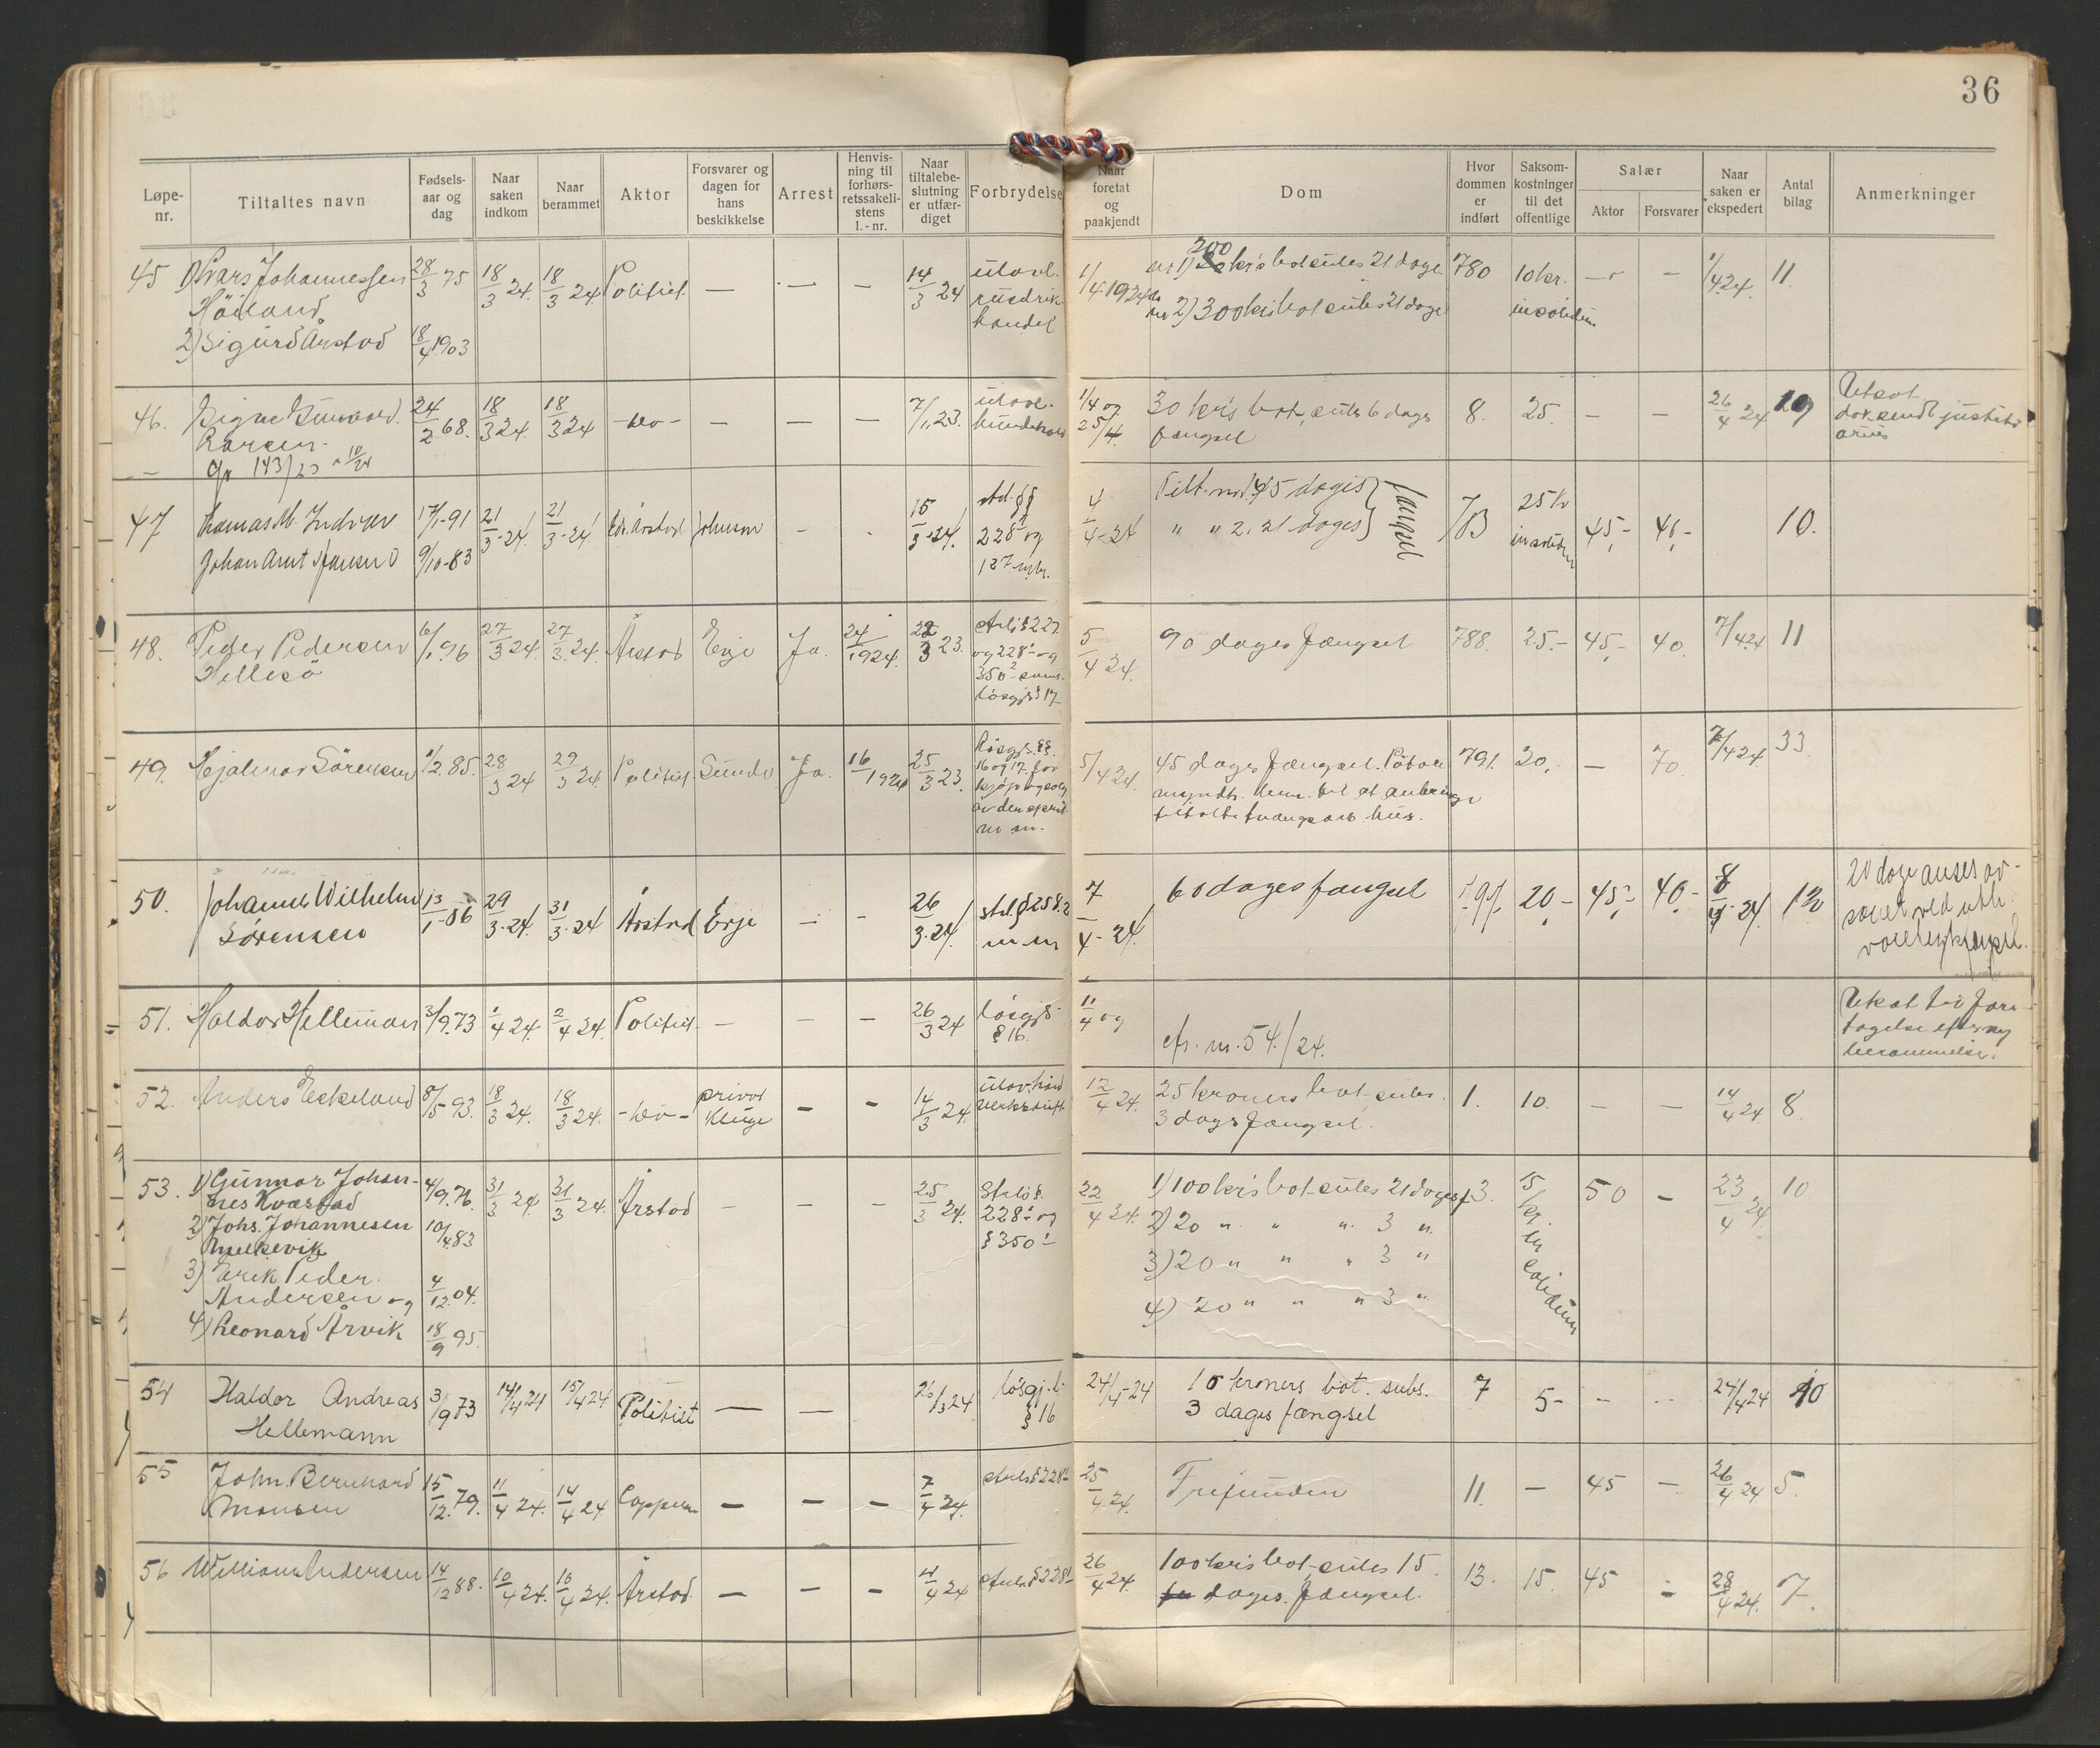 36
Løpe-nr. Tiltaltes navn Fødsels-aar og dag Naar saken indkom Naar berammet Aktor Forsvarer og dagen for hans beskikkelse Arrest Henvis-ning til forhørs-retssakeli-stens l.-nr. Naar tiltalebe-slutning er utfær-diget Forbrydelse Naar foretat og paakjendt Dom Hvor dommen er indført Saksom-kostninger til det offentlige Salær Aktor Forsvarer Naar saken er ekspedert Antal bilag Anmerkninger
45 1) Lars Johannessen 28/3 75 18/3 24. 18/3 24 Politiet — — — 14/3 24 ulovl. 1/4 1924 nr 1) 200 kr's bot subs 21 dage 780 10 kr. — — 1/4 24. 11.
Höiland
2) Sigurd Årstad 18/4 1903 handel nr 2) 300 kr's bot subs 21 dage in solidum
46. Signe 24/2 68. 18/3 24. 18/3 24 -do- — — — 7/1 23. ulovl. 1/4 og 25/4. 30 kr's bot, subs 6 dages 8. 25. — — 26/4 24 Utsat
Larsen fængsel
143/23
47 17/1-91 21/3-24. 21/3-24. Årstad Johnsen - - 15/3-24. stl. §§ 4/4-24 45 dages 25 kr 45,- 40,- 10.
Johan Arnt Jansen 9/10-83 228 og " " 2. 21 dages } fængsel in solidum
48. Peder Pedersen 6/1 96 27/3 24. 27/3 24. Årstad Erje Ja. 24/1 1924. 22/3 23. Strl § 227 5/4 24. 90 dages fængsel 788. 25.- 45,- 40. 7/4 24 11
Hellesö og 228 og
350 sam.
lösgjs § 17
49. Hjalmar Sörensen 1/2. 85. 28/3 24 29/3 24 Politiet Sunde Ja. 16/1 1924 25/3 23. Lösgjs. §§. 5/4 24. 45 dages fængsel. 791. 20,- — 70. 7/4 24 33
16 og 17. for
kjøp og salg
av den.
m. m. tvangsarb. hus.
50. Johannes Wilhelm 13/1-86 29/3-24. 31/3-24 Årstad Erje - - 26/3-24. strl. § 258.2 7/4-24. 60 dages fængsel 20- 45,- 40,- 8/4-24. 20 dage anses av-
Sörensen m m sonet ved uth.
varetegtsfængsel.
51. Haldor Helleman 3/9 73 1/4 24. 2/4 24. Politiet. — — — 26/3 24 lösgjs. § 16. 11/4 og cfr. nr. 54./24. Utsat til fore-
tagelse efter ny
berammelse.
52. Anders Eekeland 8/5 93. 18/3 24. 18/3 24. -do- privat Kluge — — 14/3 24. ulov. 12/4 24. 25 kroners bot subs. 1. 10. — — 14/4 24 8.
3 dags fængsel.
53. 1) Gunnar Johan- 4/9. 76. 31/3 24. 31/3 24. Årstad — — — 25/3 24. Strls § 22/4 24. 1) 100 kr's bot subs 21 dages f 3. 15 kr. in solidum 50 — 23/4 24. 10
nes Kvastad 228 og
2) Johs. Johannesen 10/4 83 § 350 2) 20 " " " 3 "
3) Erik Peder 4/12 04. 3) 20 " " " 3 "
Andersen og
4) Leonard Årvik 18/9 95. 4) 20 " " " 3 "
54 Haldor Andreas 3/9 73 14/4 24 15/4 24 Politiet — — 26/3 24 løsgj.l. § 16 24/4-24 10 kroners bot. subs. 7 5- - - 24/4 24 10
Hellemann 3 dages fængsel
55 John Bernhard 15/12. 79. 11/4 24. 14/4 24 — — — 7/4 24. Strls § 228 25/4 24. Frifunden 11. — 45 — 26/4 24 5.
Monsen
56 William Andersen 14/12 88. 10/4 24. 10/4 24. Årstad. — — — 4/4 24 Strls § 228 26/4 24. 100 kr's bot, subs 15 13. 15. 45 - 28/4 24. 7.
dages. fængsel.